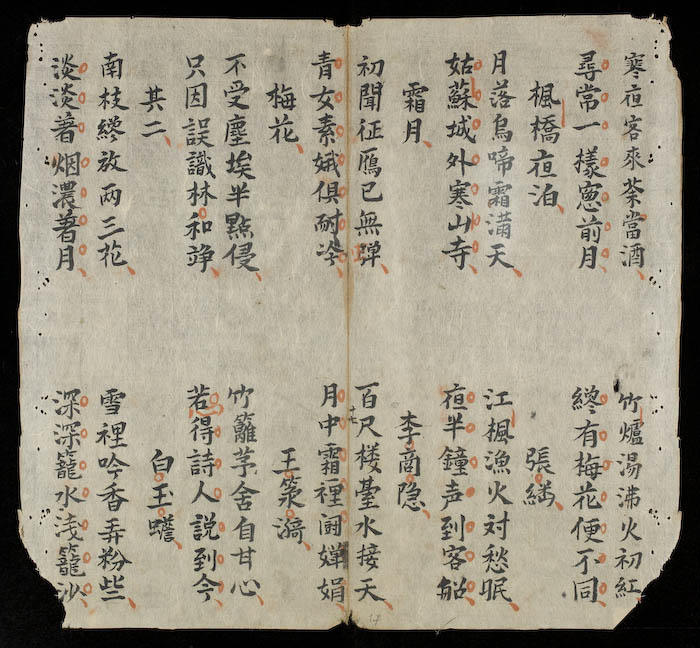 寒亱客來茶當酒 竹爐湯沸火初紅
尋常一樣窓前月 緫有梅花便不同
楓橋亱泊 張継
月落烏啼霜満天 江楓漁火対愁眠
姑蘇城外寒山寺 亱半鐘声到客船
霜月 李商隐
初聞征鴈已無蟬 百尺楼臺水接天
十七
青女素娥俱耐冷 月中霜裡闘嬋娟
梅花 王
不受塵埃半點侵 竹籬茅舍自甘心
只因誤識林和靖 若得詩人説到今
其二 白玉蟾
南枝纔放两三花 雪裡吟香弄粉些
淡淡著烟濃著月 深深籠水浅籠沙
17